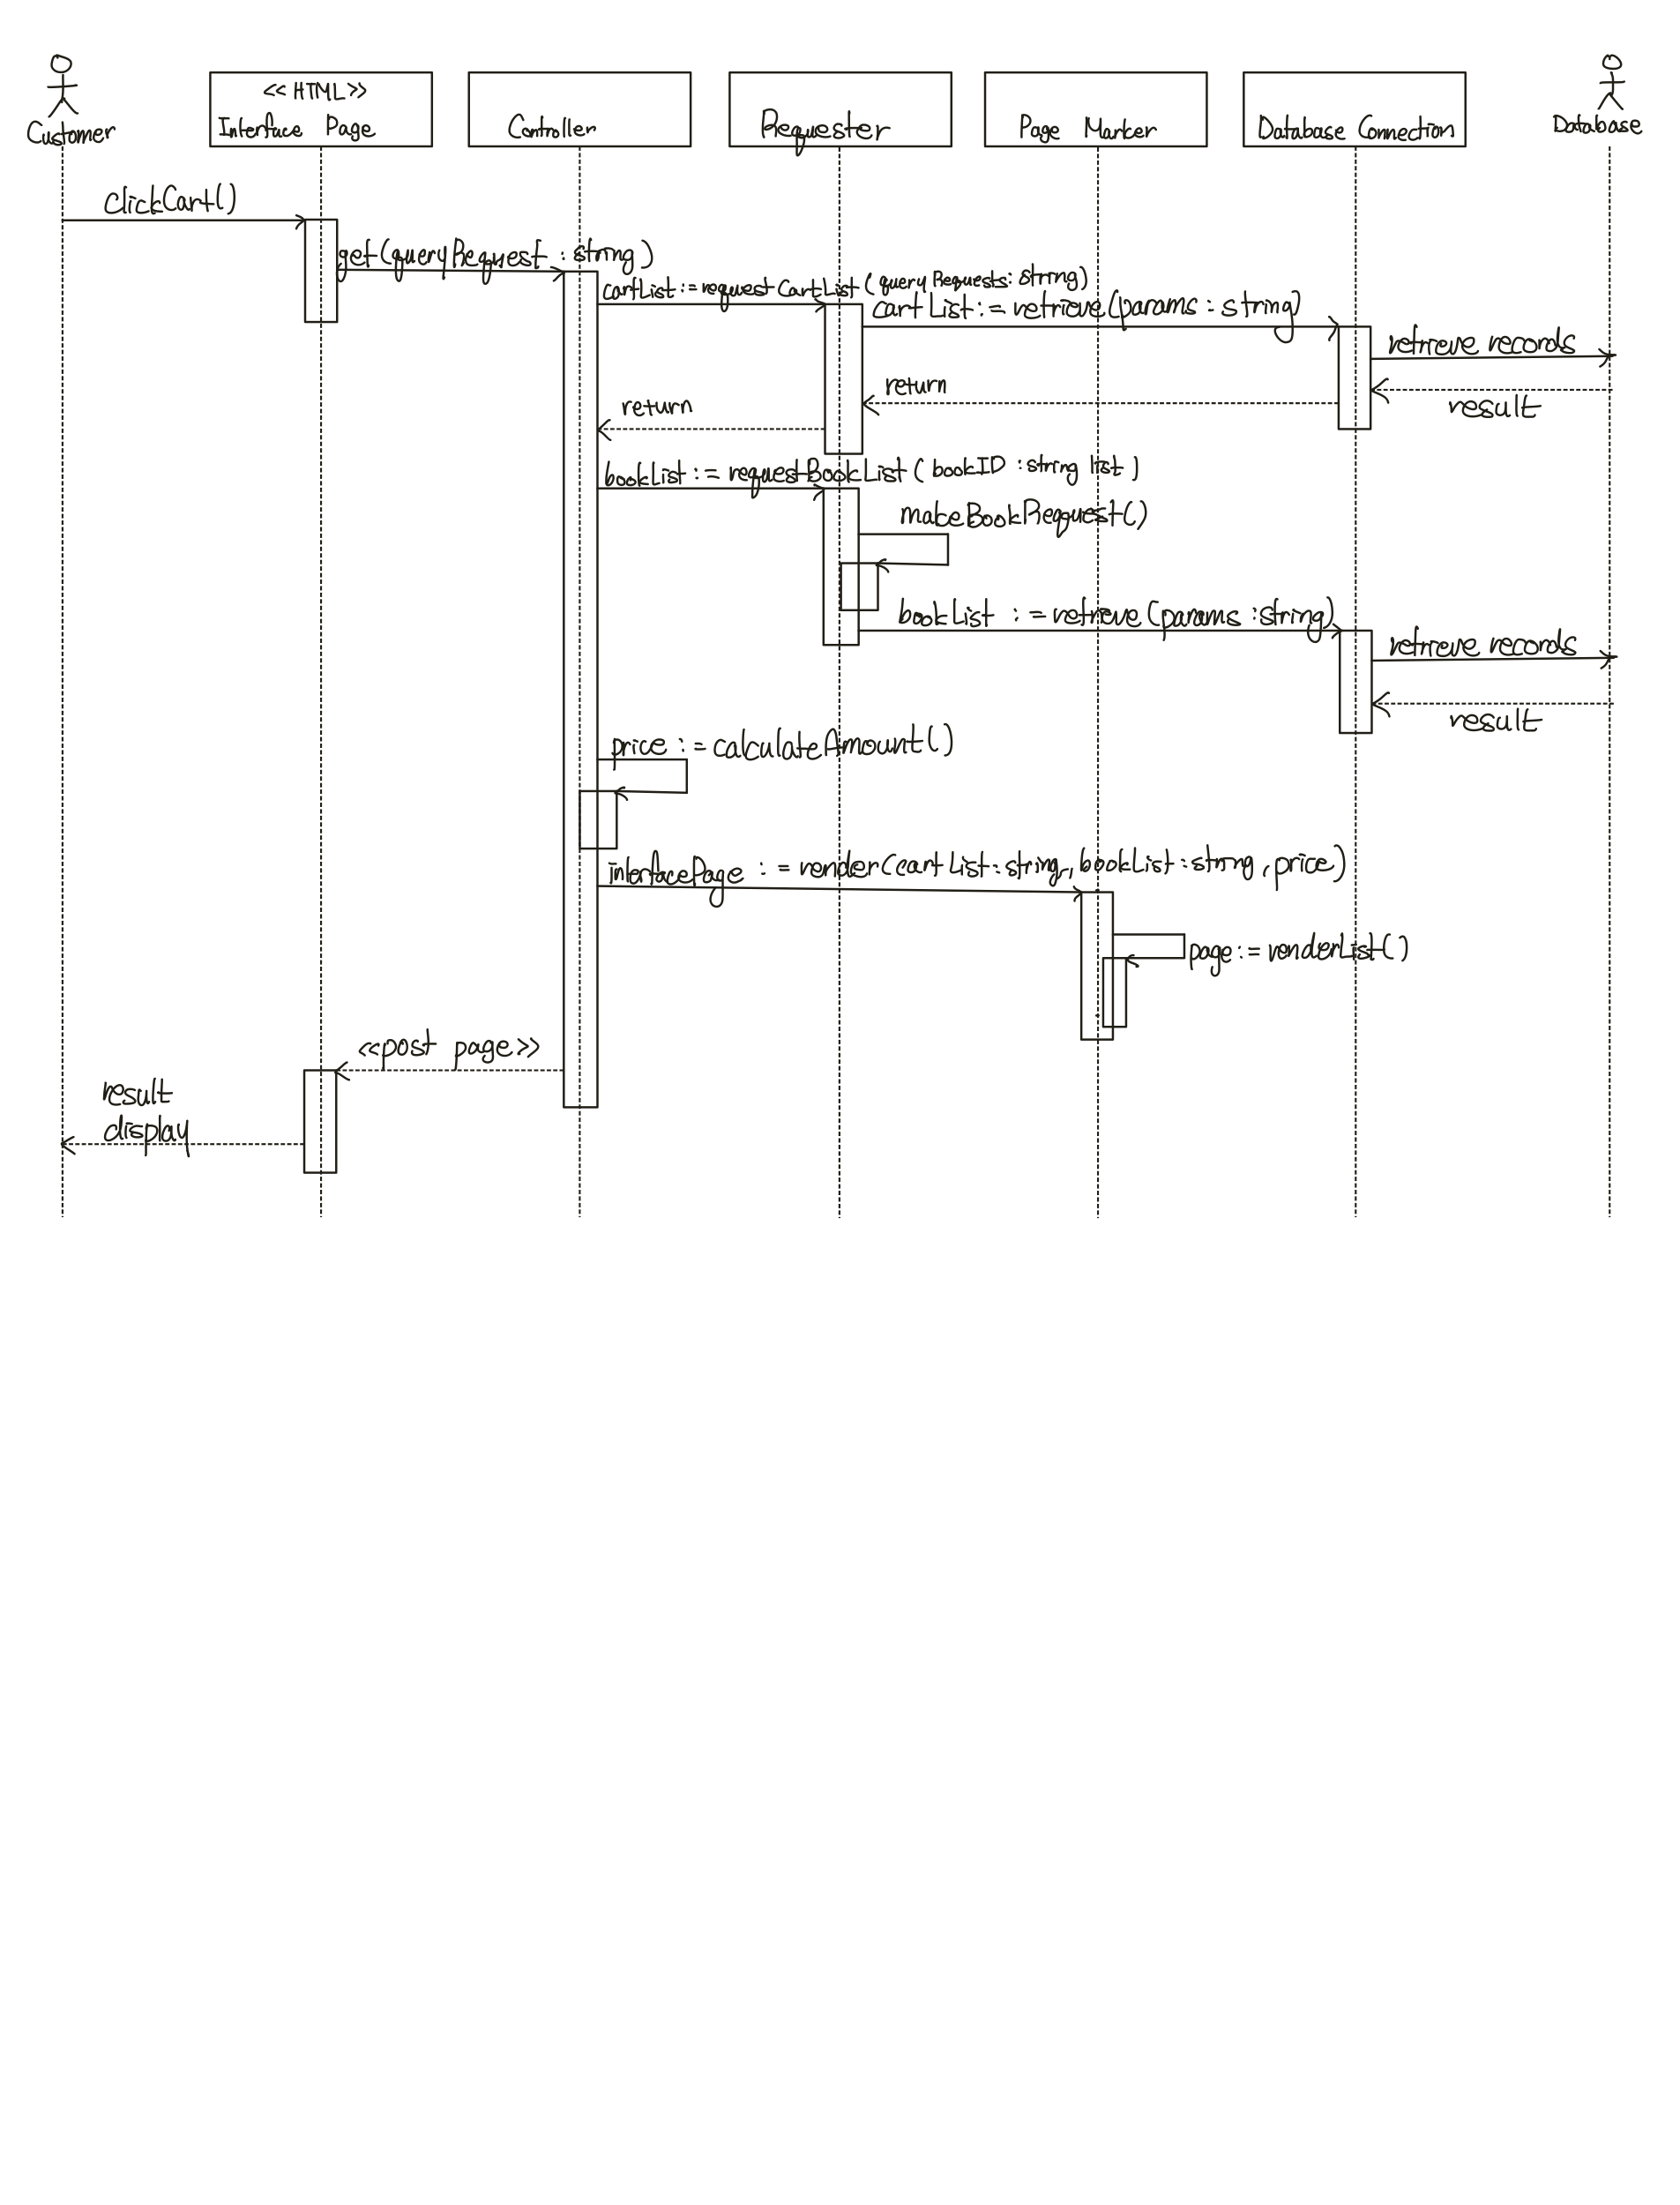 Customer
<< HTML >>
Interface Page
Controller
Requester
Page Marker
Database Connection
Database
clickCart()
get(queryRequest : string)
cartList := requestCartList (queryRequests: string)
cart List := retrieve (params : string)
retrieve records
result
return
return
bookList := requestBookList ( bookID : string list )
makeBookRequest()
bookList := retrieve (params : string)
retrieve records
result
price := calculateAmount()
interfacePage := render(cart List : string, bookList : string, price)
page := renderList()
<<post page>>
result
display